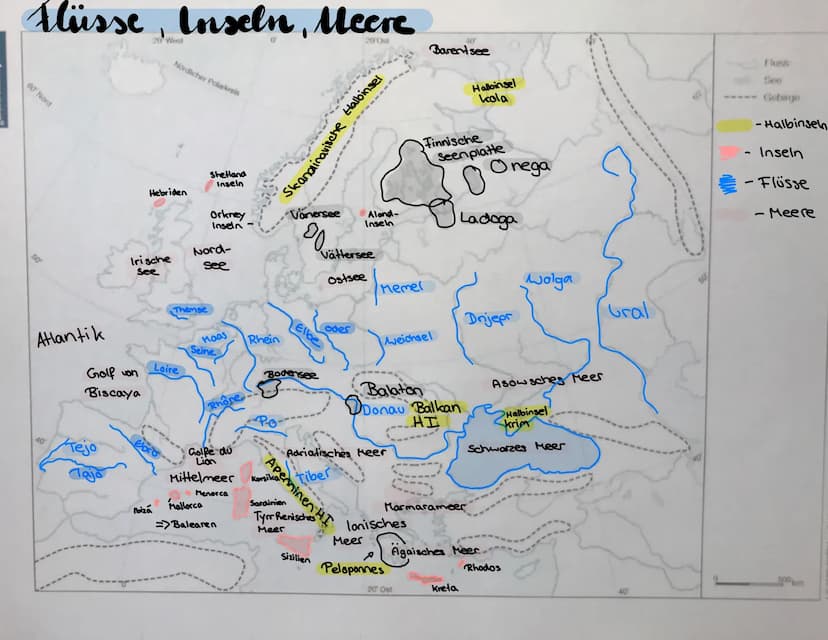 Flüsse, Inseln, Meere
20° West
0°
20° Ost
40°
Barentsee
Nördlicher Polarkreis
60° Nord
Fluss
See
Gebirge
Halbinsel
Kola
- Halbinseln
- Inseln
- Flüsse
- Meere
Skandinavische Halbinsel
Finnische
Seenplatte
Onega
Ladoga
Shetland
Inseln
Hebriden
Orkney
Inseln -
Vänersee
Åland-
Inseln
Vättersee
Irische
See
Nord-
see
Ostsee
Memel
Wolga
Ural
Dnjepr
Themse
Maas
Seine
Rhein
Elbe
Oder
Weichsel
Atlantik
Loire
Golf von
Biscaya
Bodensee
Balaton
Asowsches Meer
Rhône
Donau
Balkan
HI
Halbinsel
Krim
Po
Schwarzes Meer
Tejo
Tajo
Ebro
40
Golfe du
Lion
Adriatisches Meer
Mittelmeer
Korsika
Apenninen HI
Tiber
Menorca
Mallorca
Ibiza
=> Balearen
Sardinien
Tyrrhenisches
Meer
Marmarameer
Ionisches
Meer
Ägäisches Meer
Sizilien
Peloponnes
Rhodos
Kreta
0
20° Ost
40°
0
500 km